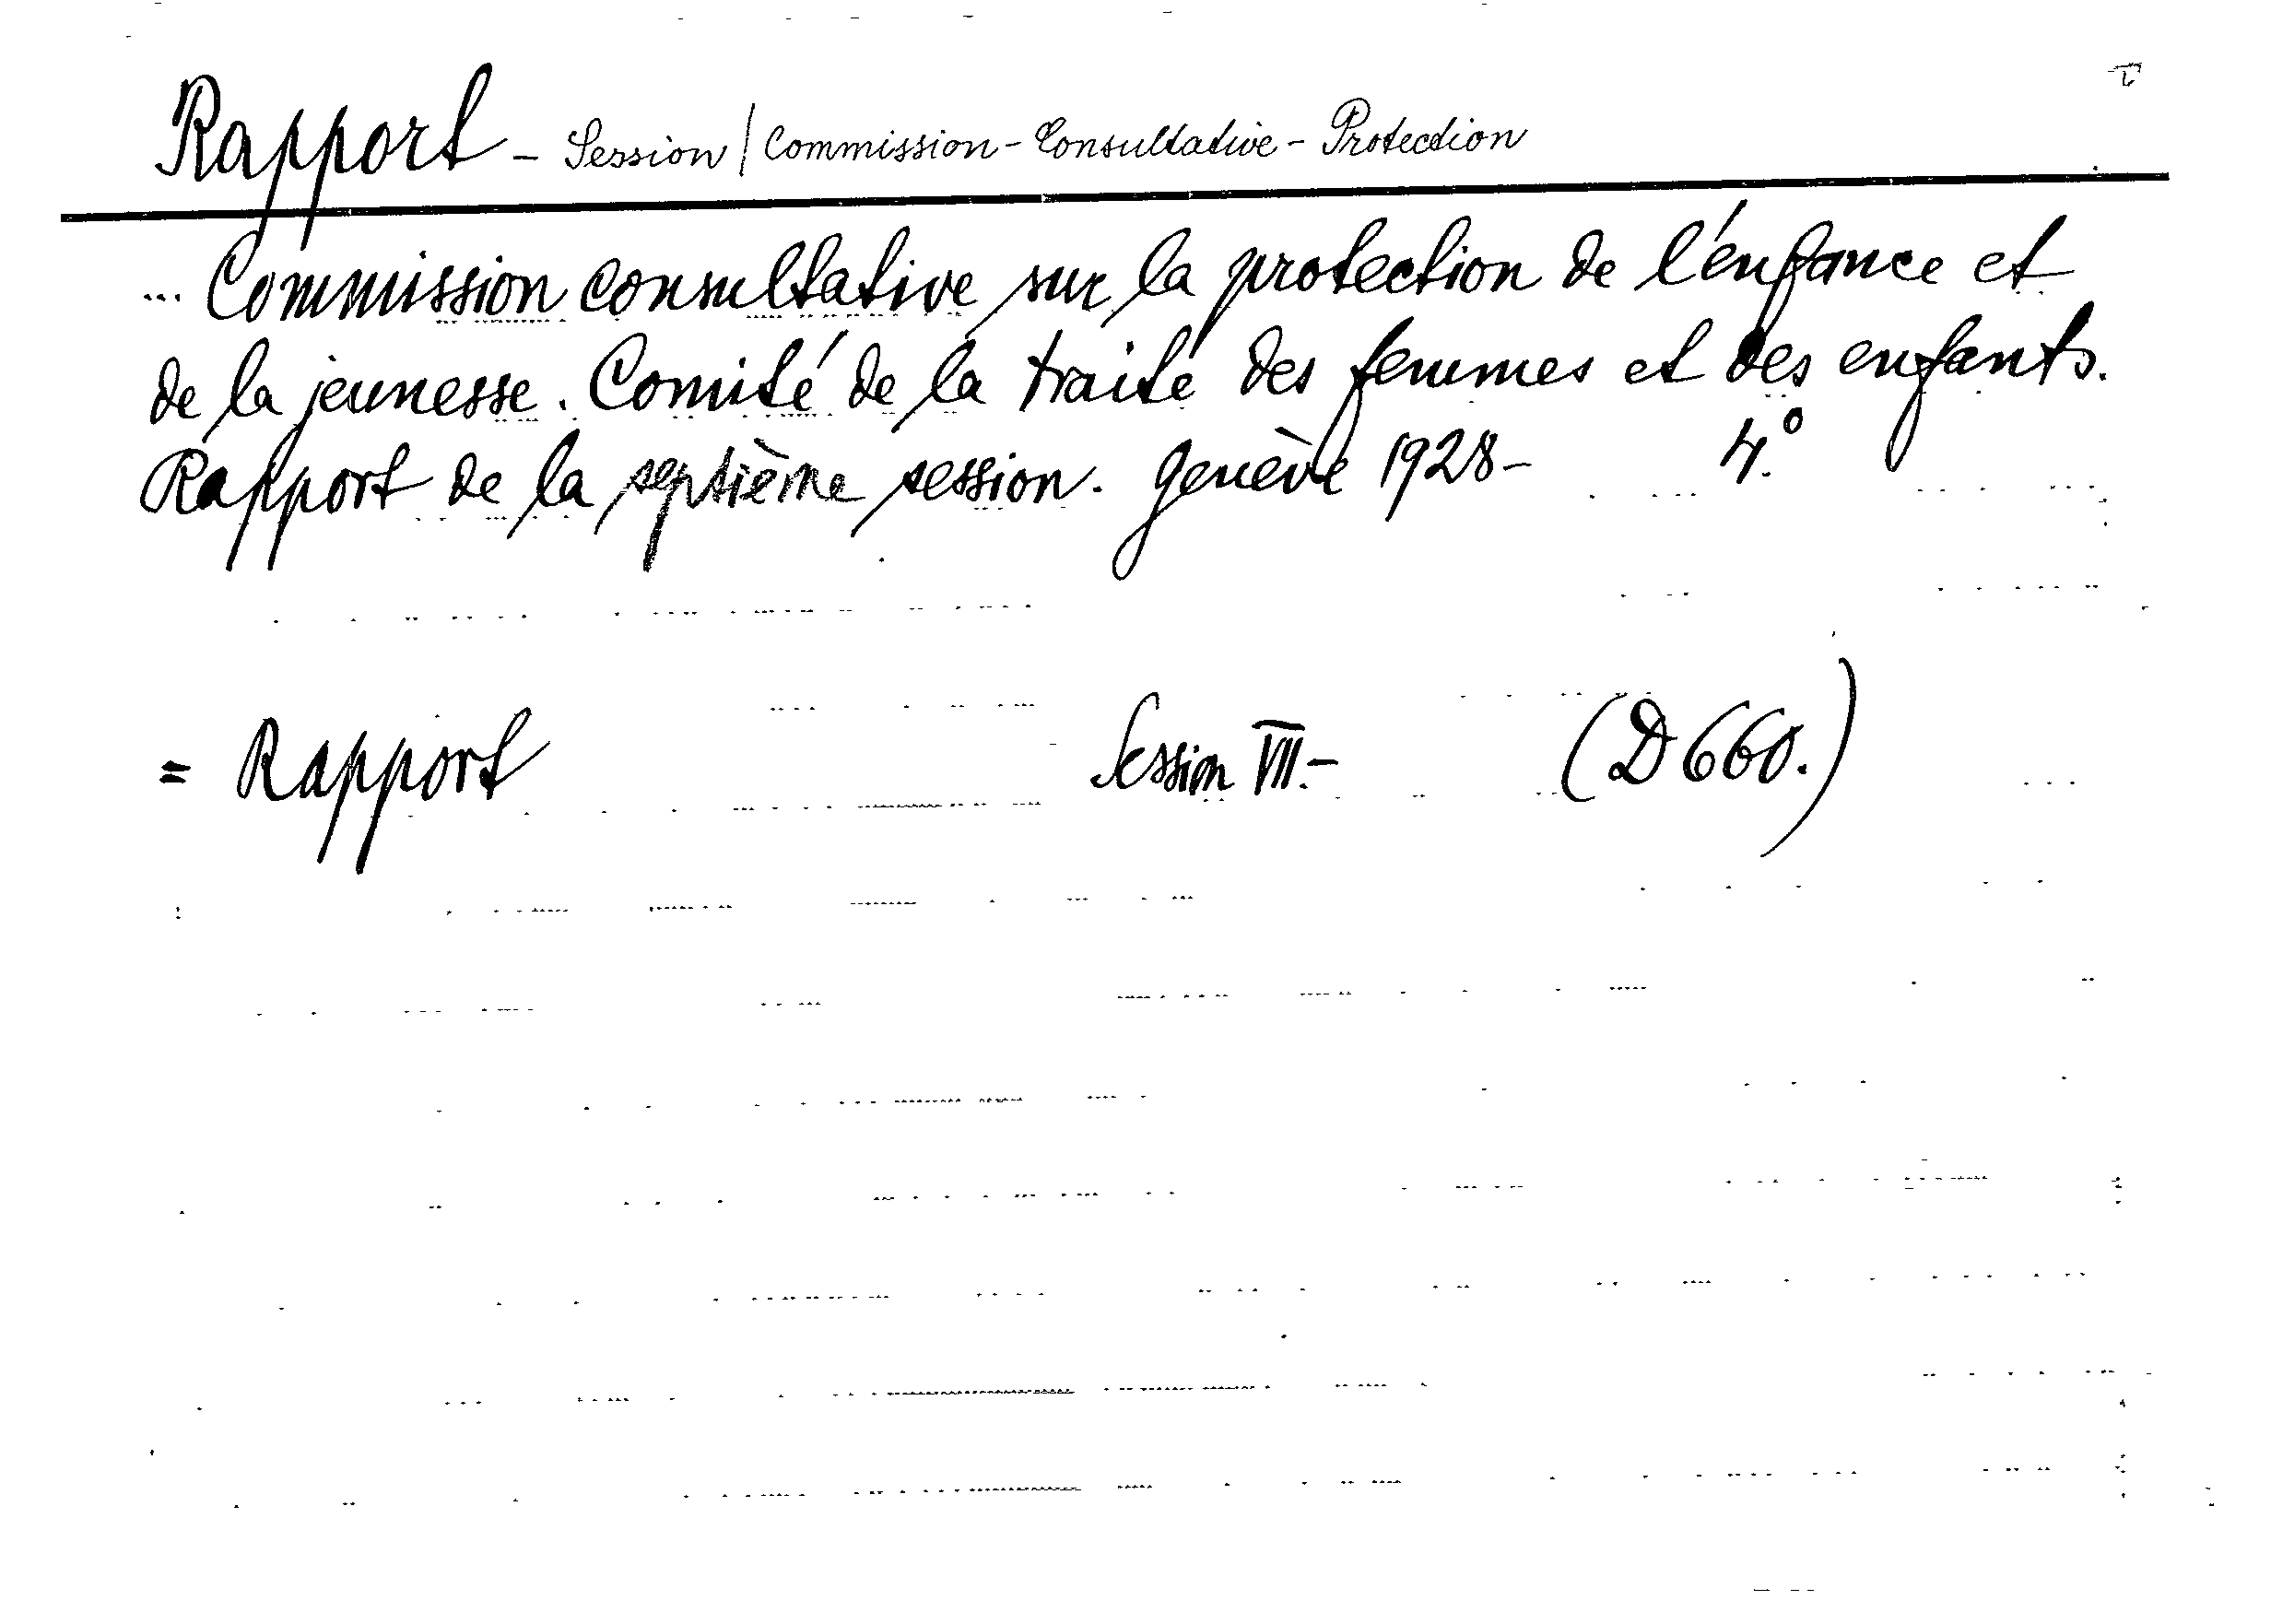 Rapport - Session / Commission - Consultative - Protection
... Commission consultative sur la protection de l'enfance et
de la jeunesse. Comité de la traité des femmes et des enfants.
Rapport de la septième session. Genève 1928- 4.°
= Rapport Session VII.- (D 660.)